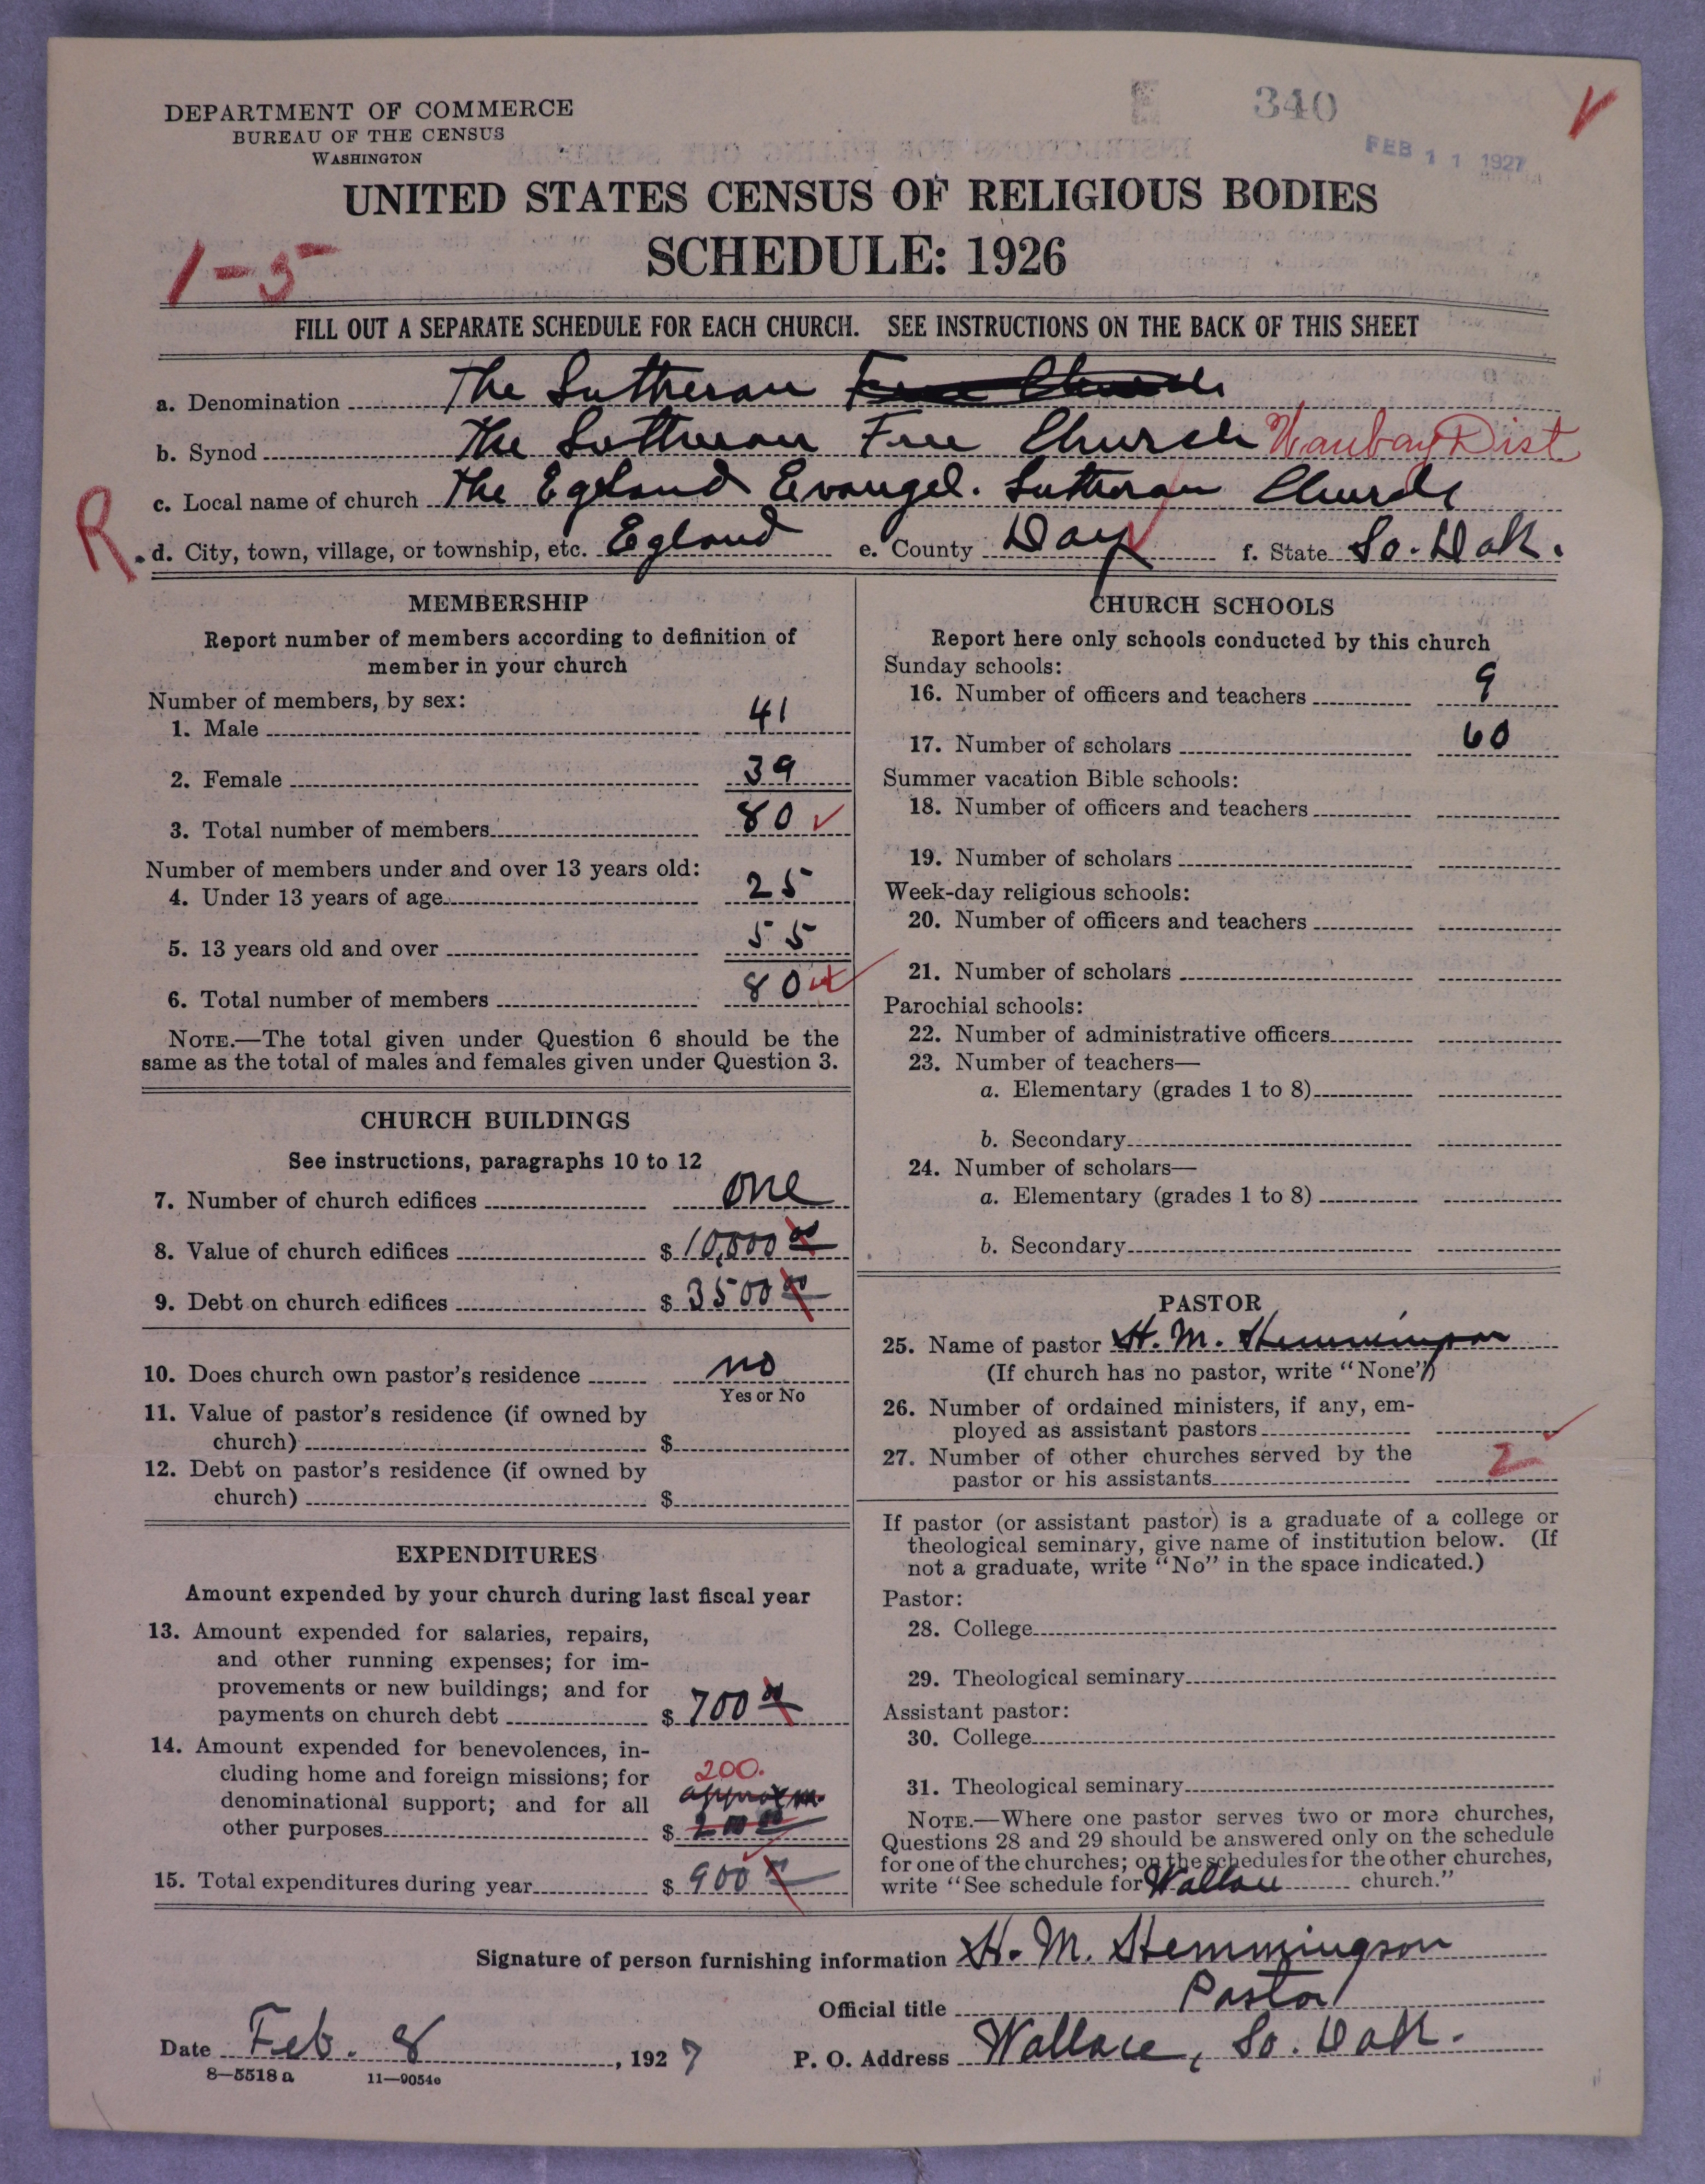 340
FEB 11 1927
DEPARTMENT OF COMMERCE
BUREAU OF THE CENSUS
WASHINGTON
UNITED STATES CENSUS OF RELIGIOUS BODIES
SCHEDULE: 1926
1-5
FILL OUT A SEPARATE SCHEDULE FOR EACH CHURCH. SEE INSTRUCTIONS ON THE BACK OF THIS SHEET
a. Denomination The Lutheran Free Church
b. Synod The Lutheran Free Church Waubay Dist
c. Local name of church The Egeland Evangel. Lutheran Church
R
d. City, town, village, or township, etc. Egland e. County Day f. State So. Dak.
MEMBERSHIP
Report number of members according to definition of
member in your church
Number of members, by sex:
1. Male 41
2. Female 39
3. Total number of members 80
Number of members under and over 13 years old:
4. Under 13 years of age 25
5. 13 years old and over 55
6. Total number of members 80
NOTE.—The total given under Question 6 should be the
same as the total of males and females given under Question 3.
CHURCH BUILDINGS
See instructions, paragraphs 10 to 12
7. Number of church edifices one
8. Value of church edifices $ 10,000 00
9. Debt on church edifices $ 3500 00
10. Does church own pastor's residence no
Yes or No
11. Value of pastor's residence (if owned by
church) $
12. Debt on pastor's residence (if owned by
church) $
EXPENDITURES
Amount expended by your church during last fiscal year
13. Amount expended for salaries, repairs,
and other running expenses; for im-
provements or new buildings; and for
payments on church debt $ 700 00
14. Amount expended for benevolences, in-
cluding home and foreign missions; for 200.
denominational support; and for all approxm.
other purposes $ 200 00
15. Total expenditures during year $ 900 00
CHURCH SCHOOLS
Report here only schools conducted by this church
Sunday schools:
16. Number of officers and teachers 9
17. Number of scholars 60
Summer vacation Bible schools:
18. Number of officers and teachers
19. Number of scholars
Week-day religious schools:
20. Number of officers and teachers
21. Number of scholars
Parochial schools:
22. Number of administrative officers
23. Number of teachers—
a. Elementary (grades 1 to 8)
b. Secondary
24. Number of scholars—
a. Elementary (grades 1 to 8)
b. Secondary
PASTOR
25. Name of pastor H. M. Hemmingson
(If church has no pastor, write "None")
26. Number of ordained ministers, if any, em-
ployed as assistant pastors
27. Number of other churches served by the
pastor or his assistants 2
If pastor (or assistant pastor) is a graduate of a college or
theological seminary, give name of institution below. (If
not a graduate, write "No" in the space indicated.)
Pastor:
28. College
29. Theological seminary
Assistant pastor:
30. College
31. Theological seminary
NOTE.—Where one pastor serves two or more churches,
Questions 28 and 29 should be answered only on the schedule
for one of the churches; on the schedules for the other churches,
write "See schedule for Wallace church."
Signature of person furnishing information H. M. Hemmingson
Official title Pastor
Date Feb. 8, 1927 P. O. Address Wallace, So. Dak.
8—5518 a 11—9054e